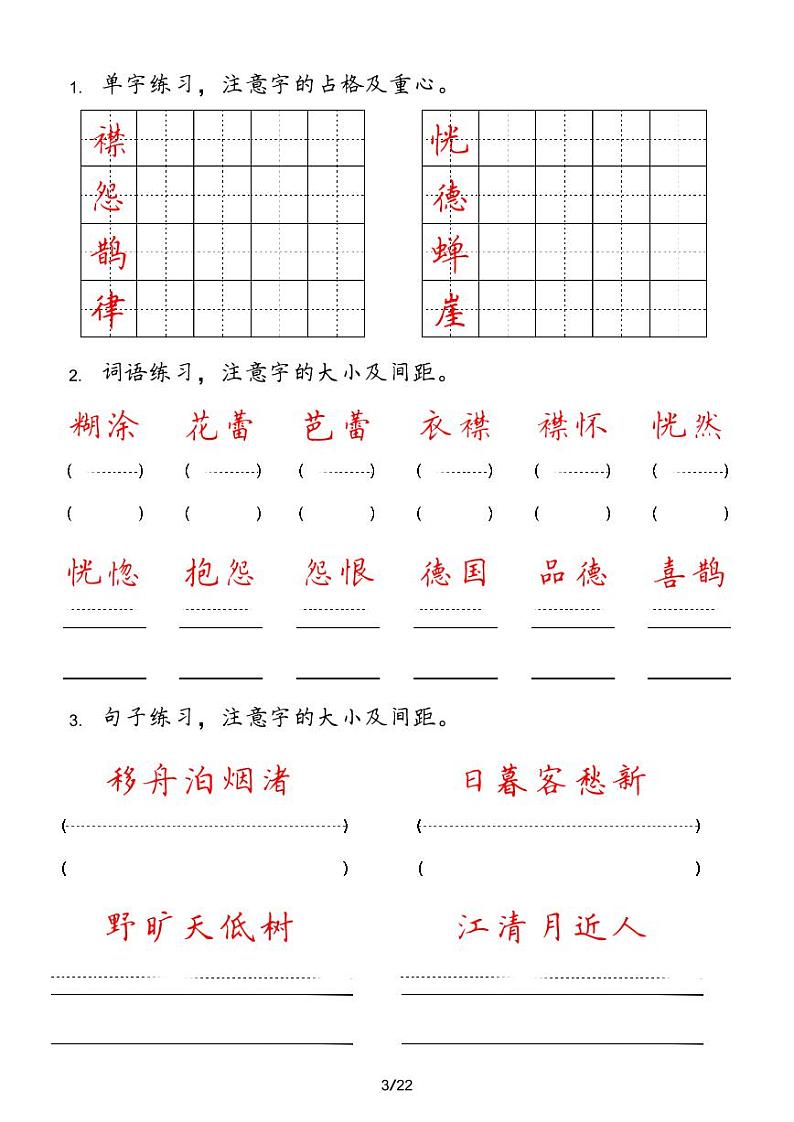 1. 单字练习，注意字的占格及重心。
襟 恍
怨 德
鹊 蝉
律 崖
2. 词语练习，注意字的大小及间距。
糊涂 花蕾 芭蕾 衣襟 襟怀 恍然
( ) ( ) ( ) ( ) ( ) ( )
( ) ( ) ( ) ( ) ( ) ( )
恍惚 抱怨 怨恨 德国 品德 喜鹊
3. 句子练习，注意字的大小及间距。
移舟泊烟渚 日暮客愁新
( ) ( )
( ) ( )
野旷天低树 江清月近人
3/22